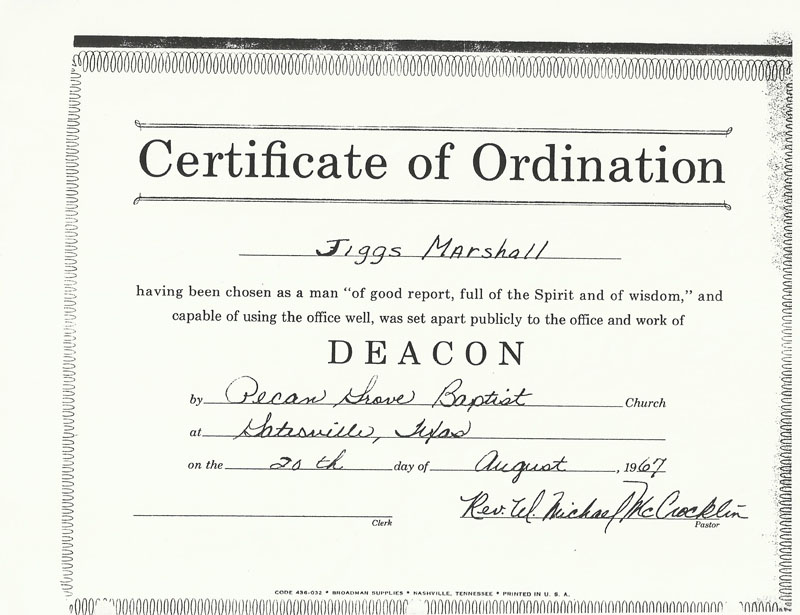 Certificate of Ordination
Jiggs Marshall
having been chosen as a man “of good report, full of the Spirit and of wisdom,” and
capable of using the office well, was set apart publicly to the office and work of
DEACON
by Pecan Grove Baptist Church
at Gatesville, Texas
on the 20th day of August, 1967
Rev. W. Michael McCrocklin
Clerk Pastor
CODE 436-032 * BROADMAN SUPPLIES * NASHVILLE, TENNESSEE * PRINTED IN U. S. A.